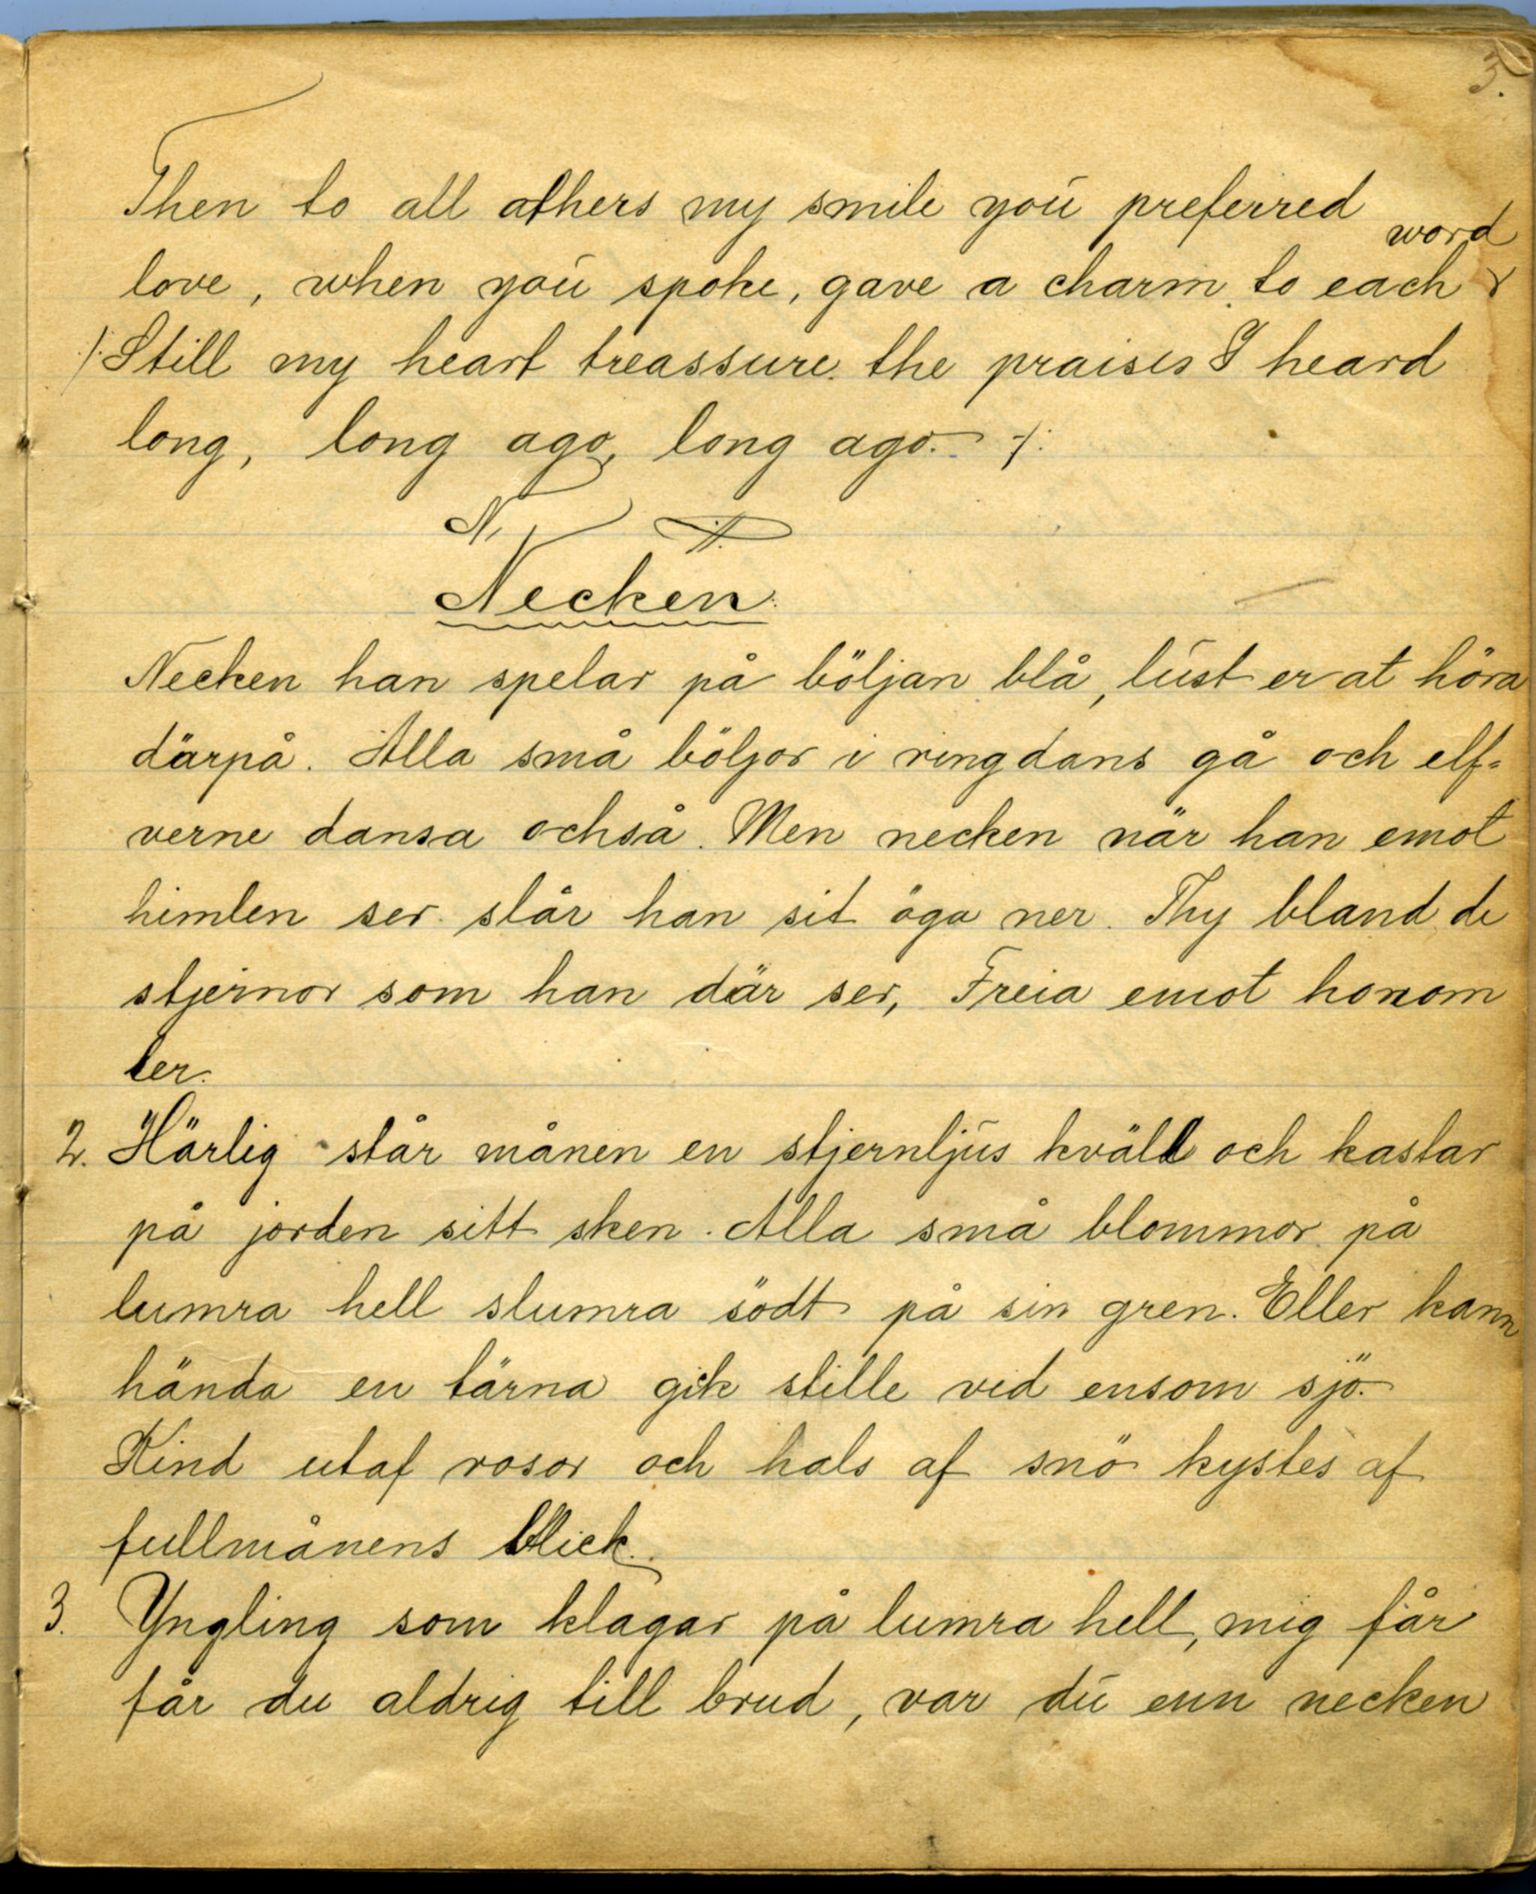 3.
Then to all others my smile you preferred
love, when you spoke, gave a charm to each word
/: Still my heart treassure the praises I heard
long, long ago, long ago. :/:
N.
Necken
Necken han spelar på böljan blå, lust er at höra
därpå. Alla små böljor i ringdans gå och elf=
verne dansa också. Men necken när han emot
himlen ser slår han sit öga ner. Thy bland de
stjernor som han där ser, Freia emot honom
ler.
2. Härlig står månen en stjernljus kväll och kastar
på jorden sitt sken. Alla små blommor på
lumra hell slumra södt på sin gren. Eller kann
hända en tärna gik stille vid ensom sjö.
Kind utaf rosor och hals af snö kystes af
fullmånens blick.
3. Yngling som klagar på lumra hell, mig får
får du aldrig till brud, var du enn necken